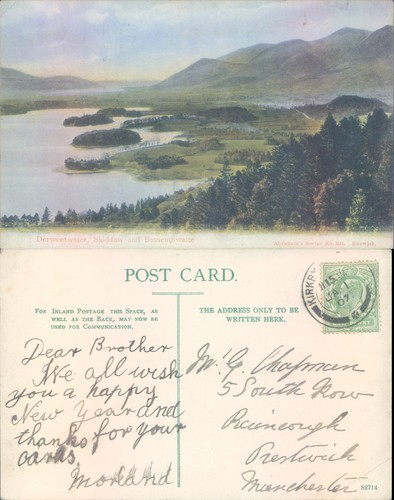 Derwentwater, Skiddaw and Bassenthwaite
Keswick.
POST CARD.
FOR INLAND POSTAGE THIS SPACE, AS
WELL AS THE BACK, MAY NOW BE
USED FOR COMMUNICATION.
THE ADDRESS ONLY TO BE
WRITTEN HERE.
Dear Brother
We all wish
you a happy
New Year and
thanks for your
cards
Mr G. Chapman
5 South Row
Prestwick
Manchester
82714